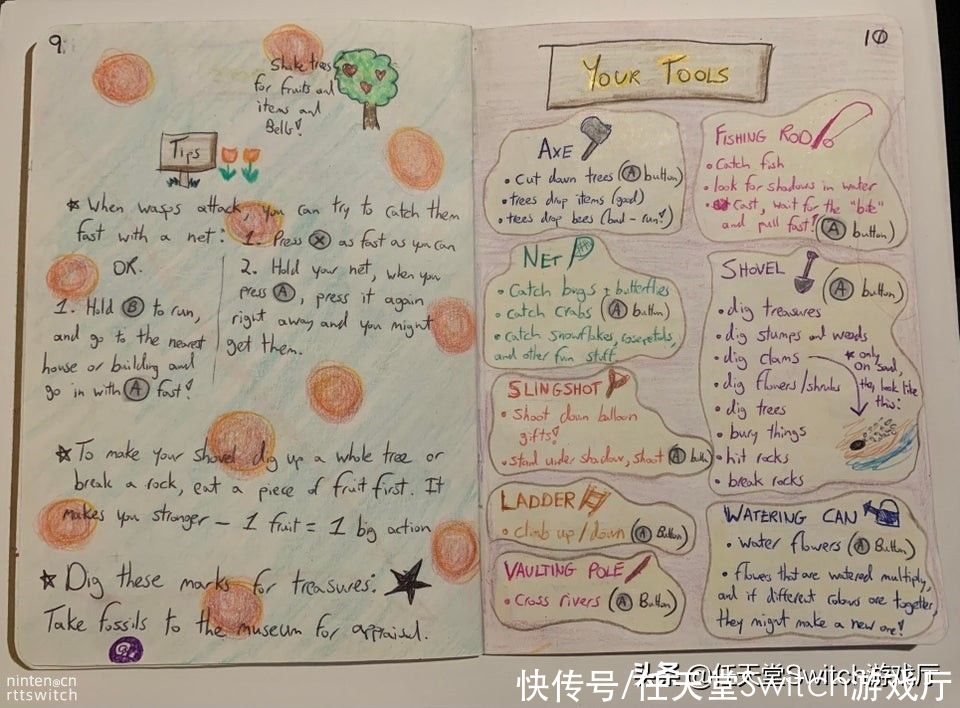 9.
Shake trees
for fruits and
items and
Bells!
Tips
* When wasps attack, you can try to catch them
fast with a net:
1. Press X as fast as you can
OR.
2. Hold your net, when you
press A, press it again
right away and you might
get them.
1. Hold B to run,
and go to the nearest
house or building and
go in with A fast!
* To make your shovel dig up a whole tree or
break a rock, eat a piece of fruit first. It
makes you stronger – 1 fruit = 1 big action
* Dig these marks for treasures:
Take fossils to the museum for appraisal.
10
YOUR TOOLS
AXE
• Cut down trees (A button)
• trees drop items (good)
• trees drop bees (bad - run!)
NET
• Catch bugs + butterflies
• catch crabs (A button)
• catch snowflakes, rosepetals,
and other fun stuff
SLINGSHOT
• Shoot down balloon
gifts!
• Stand under shadow, shoot (A button)
LADDER
• climb up/down (A Button)
VAULTING POLE
• Cross rivers (A Button)
FISHING ROD
• Catch fish
• look for shadows in water
• Cast, wait for the "bite"
and pull fast! (A button)
SHOVEL
(A button)
• dig treasures
• dig stumps and weeds
• dig clams
* only
on sand,
they look like
this:
• dig flowers/shrubs
• dig trees
• bury things
• hit rocks
• break rocks
WATERING CAN
• Water flowers (A Button)
• flowers that are watered multiply,
and if different colours are together,
they might make a new one!
ninten@cn
rttswitch
头条@任天堂Switch游戏厅
快传号/任天堂Switch游戏厅